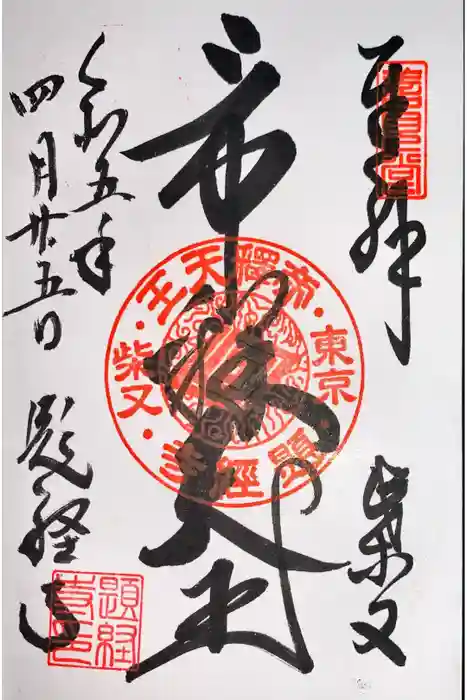 奉拝
柴又
喜見堂
帝釈天王
帝釋天王
東京
柴又
題經寺
令和五年
四月廿五日
題経寺
題経
寺印